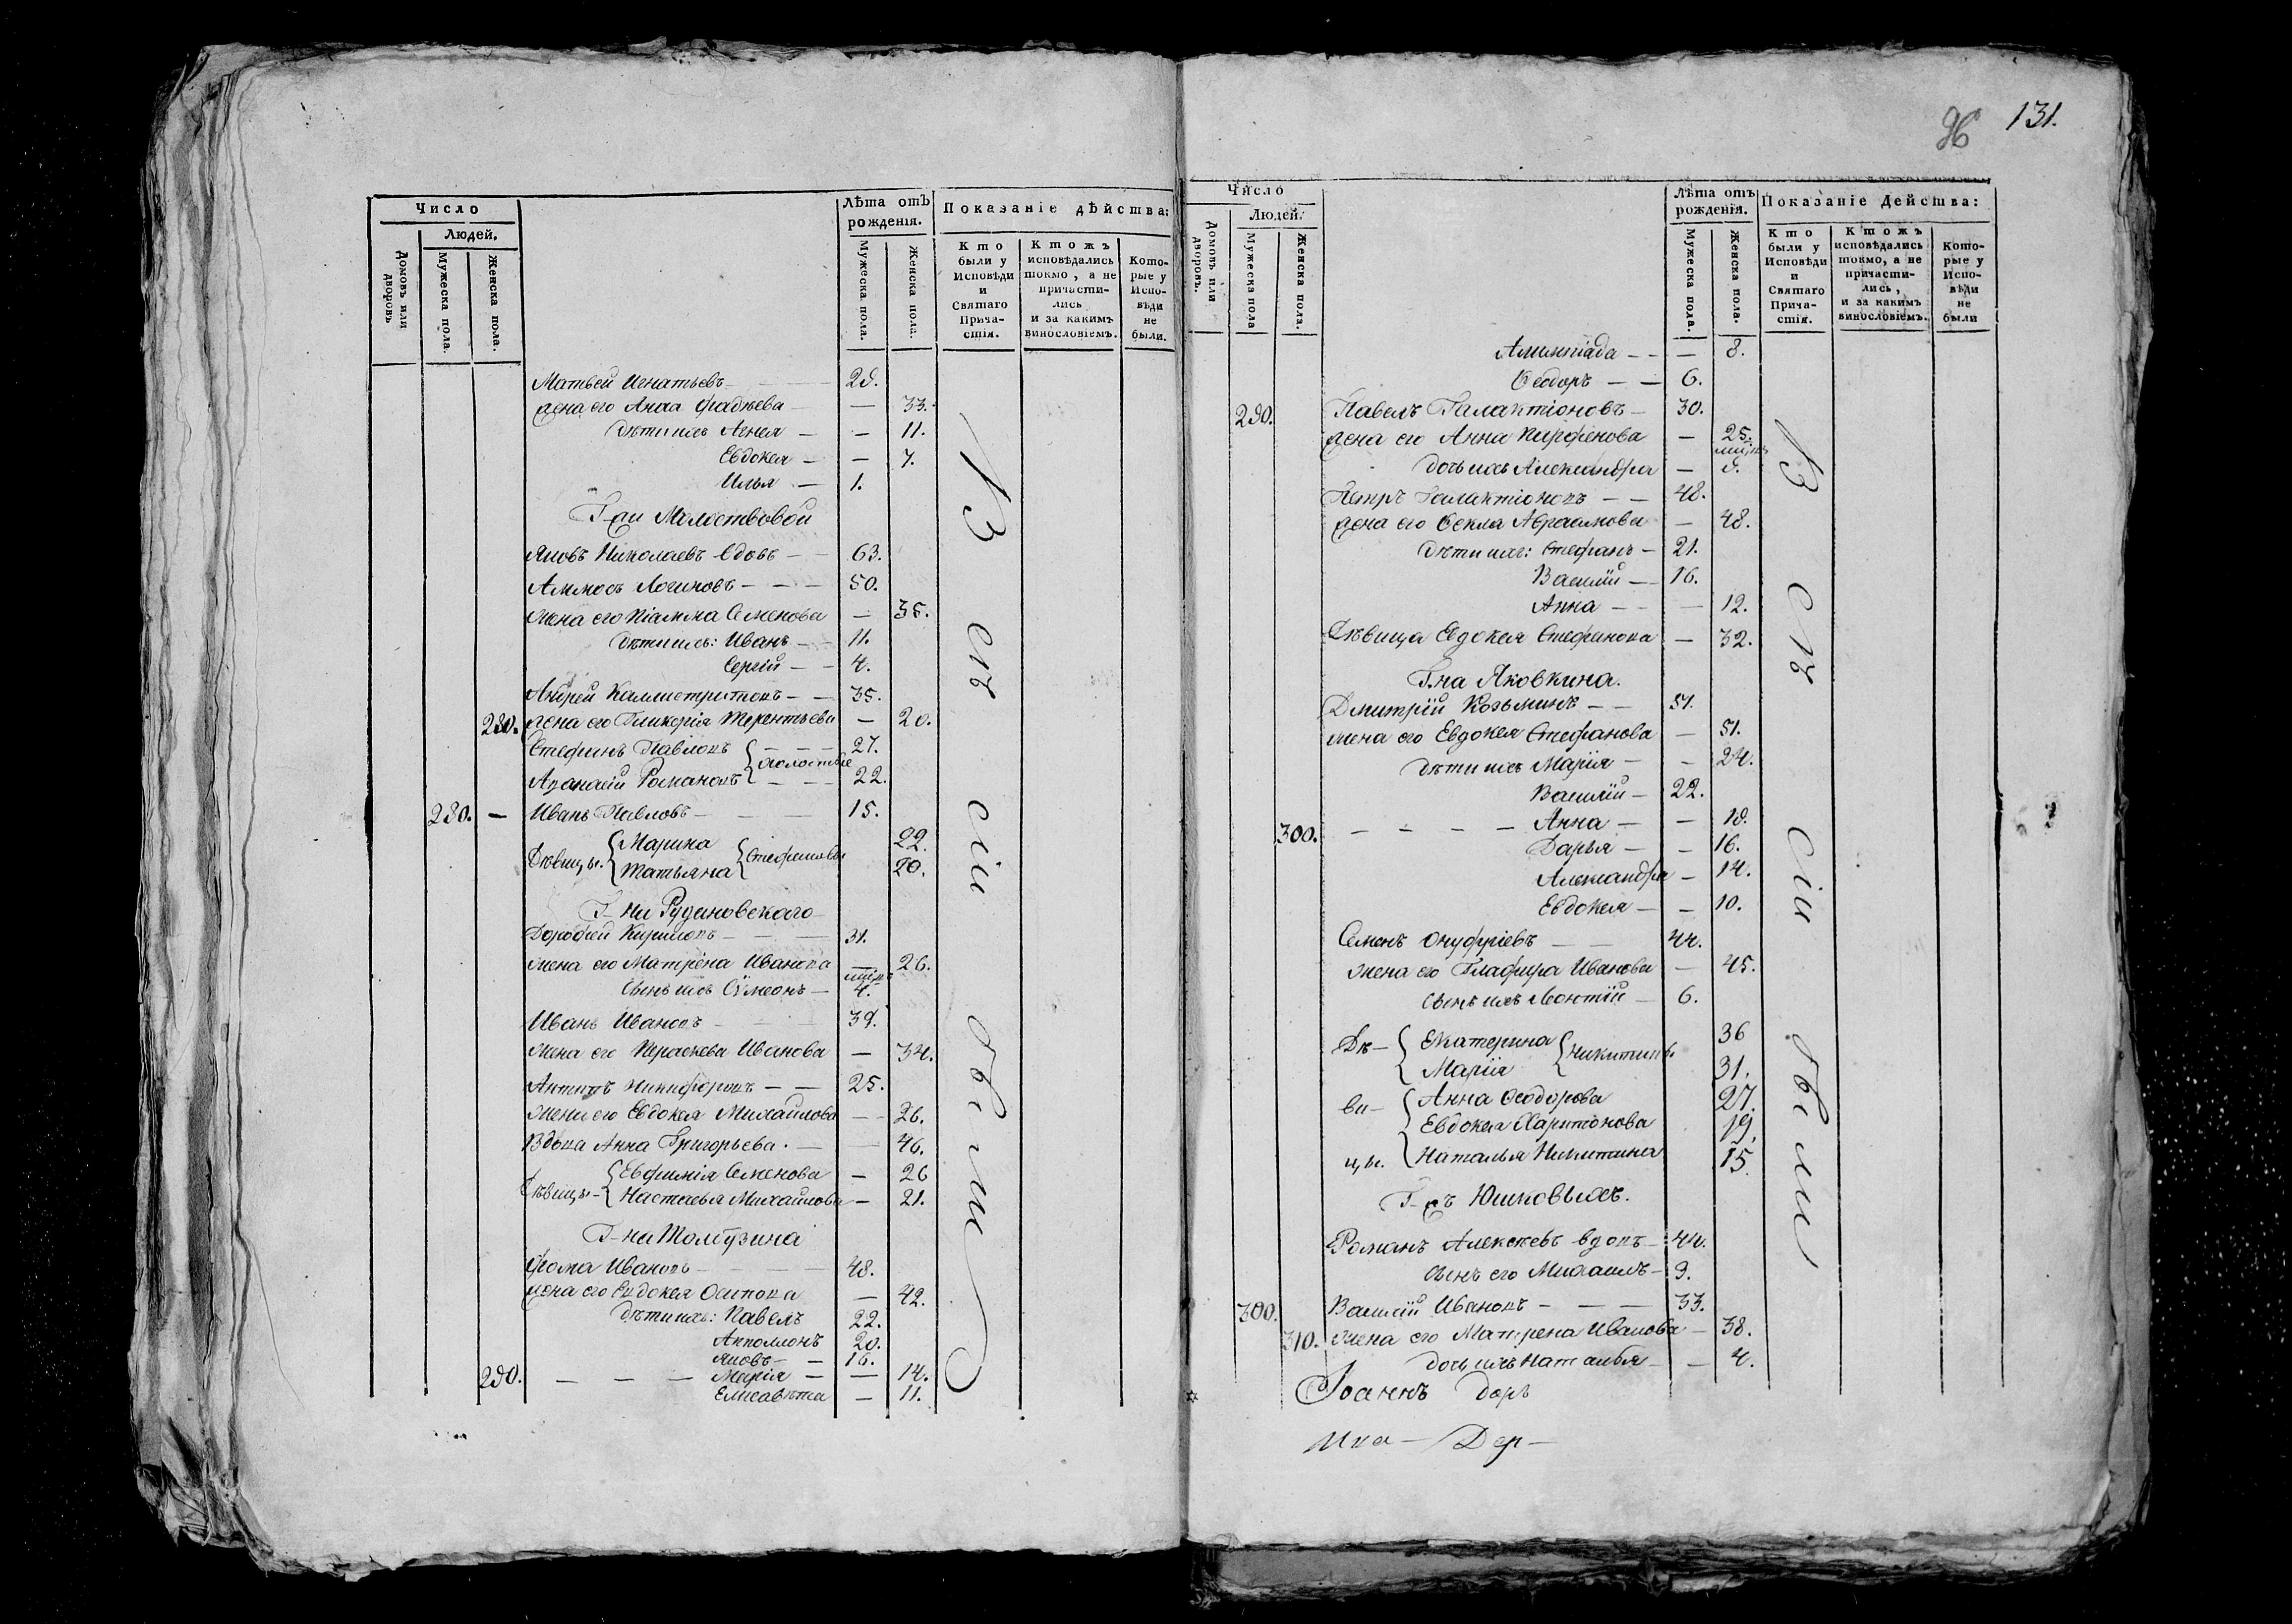 Число
Людей.
Домовъ или дворовъ
Мужеска пола.
Женска пола.
Лѣта отъ рожденія.
Мужеска пола.
Женска пола.
Показаніе дѣйства:
Кто были у Исповѣди и Святаго Причастія.
Ктожъ исповѣдались токмо, а не причастились и за какимъ винословіемъ.
Которые у Исповѣди не были.
Матвей Игнатьевъ — 28.
жена его Анна Фадѣева — 33.
дѣти ихъ Агнея — — 11.
Евдокея — — 7.
Илья — 1.
Г-жи Молоствовой
Яковъ Николаевъ вдовъ — 63.
Аммосъ Логиновъ — — — 50.
жена его Семенова — 35.
дѣти ихъ: Иванъ — 11.
Сергій — — 4.
Андрей Каллистратовъ — — 35.
280. жена его Гликерія Терентьева — 20.
Стефанъ Павловъ — — — 27.
холостые
Афанасій Романовъ — — — 22.
280. — Иванъ Павловъ — 15.
Дѣвицы. Марина Стефановы 22.
Татьяна 20.
Г-на Рудановскаго
Дорофей Кириловъ — 31.
жена его Матрена Ивановa — 26.
сынъ ихъ Сѵмеонъ — 4.
Иванъ Ивановъ 39.
жена его Параскева Иванова — 34.
Антипъ Никифоровъ — — 25.
жена его Евдокея Михайлова — 26.
Вдова Анна Григорьева. — 46.
Дѣвицы Евфимія Семенова — 26
Настасья Михайлова — 21.
Г-на Толбузина
Фома Ивановъ — 48.
жена его Евдокея Осипова — 42.
дѣти ихъ: Павелъ 22.
Апполлонъ 20.
Яковъ — — 16.
290. — — — Марія — — 14.
Елисавета — 11.
Всѣ сіи были
96 131.
Число
Людей.
Домовъ или дворовъ.
Мужеска пола
Женска пола.
Лѣта отъ рожденія.
Мужеска пола.
Женска пола.
Показаніе Дейсшва:
Кто были у Исповѣди и Святаго Причастія.
Ктожъ исповѣдались токмо, а не причастились, и за какимъ винословіемъ.
Которые у Исповѣди не были
Алимпіада — — — 8.
Ѳеодоръ — — 6.
290. Павелъ Галактіоновъ — 30.
жена его Анна Парфенова — 25.
дочь ихъ Александра — 8.
Петръ Галактіоновъ — — 48.
жена его Ѳекла Авраамова — 48.
дѣти ихъ: Стефанъ — 21.
Василій — 16.
Анна — — — 12.
Дѣвица Евдокея Стефанова — 32.
Г-на Яковкина.
Дмитрій Козьминъ — — 51.
жена его Евдокея Стефанова — 51.
дѣти ихъ Марія — — 24.
Василій — 22.
300. — — — — Анна — — 18.
Дарья — — 16.
Александра — 14.
Евдокея — — 10.
Семенъ Онуфріевъ — — 44.
жена его Глафира Иванова — 45.
сынъ ихъ Леонтій — 6.
Дѣ- Екатерина Никитины 36
Марія 31.
ви- Анна Ѳеодорова 27.
Евдокея Харитонова 19.
цы. Наталья Никитина 15.
Г-дъ Юшковыхъ.
Романъ Алексѣевъ вдовъ — 44.
сынъ его Михаилъ — 9.
300. Василій Ивановъ — — — 33.
310. жена его Матрена Иванова — 38.
дочь ихъ Наталья — — 4.
Всѣ сіи были
Іоаннъ